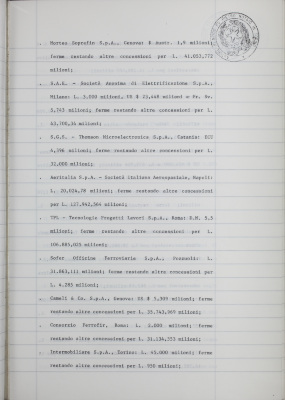 . Morteo Soprefin S.p.A., Genova: $ austr. 1,9 milioni;
ferme restando altre concessioni per L. 41.053,772
milioni;
. S.A.E. - Società Anonima di Elettrificazione S.p.A.,
Milano: L. 3.000 milioni, US $ 23,448 milioni e Fr. Sv.
5,743 milioni; ferme restando altre concessioni per L.
milioni;
. S.G.S. - Thomson Microelectronics S.p.A., Catania: ECU
4,396 milioni; ferme restando altre concessioni per L.
32.000 milioni;
. Aeritalia S.p.A. - Società Italiana Aerospaziale, Napoli:
L. 20.024,78 milioni; ferme restando altre concessioni
per L. 127.942,564 milioni;
. TPL - Tecnologie Progetti Lavori S.p.A., Roma: D.M. 5,5
milioni; ferme restando altre concessioni per L.
106.885,025 milioni;
. Sofer Officine Ferroviarie S.p.A., Pozzuoli: L.
31.863,111 milioni; ferme restando altre concessioni per
L. 4.285 milioni;
. Cameli & Co. S.p.A., Genova: US $ 5,309 milioni; ferme
restando altre concessioni per L. 25.743,965 milioni;
. Consorzio Ferrofir, Roma: L. 2.600 milioni; ferme
restando altre concessioni per L. 31.134,553 milioni;
. Intermobiliare S.p.A., Torino: L. 45.000 milioni; ferme
restando altre concessioni per L. 950 milioni;